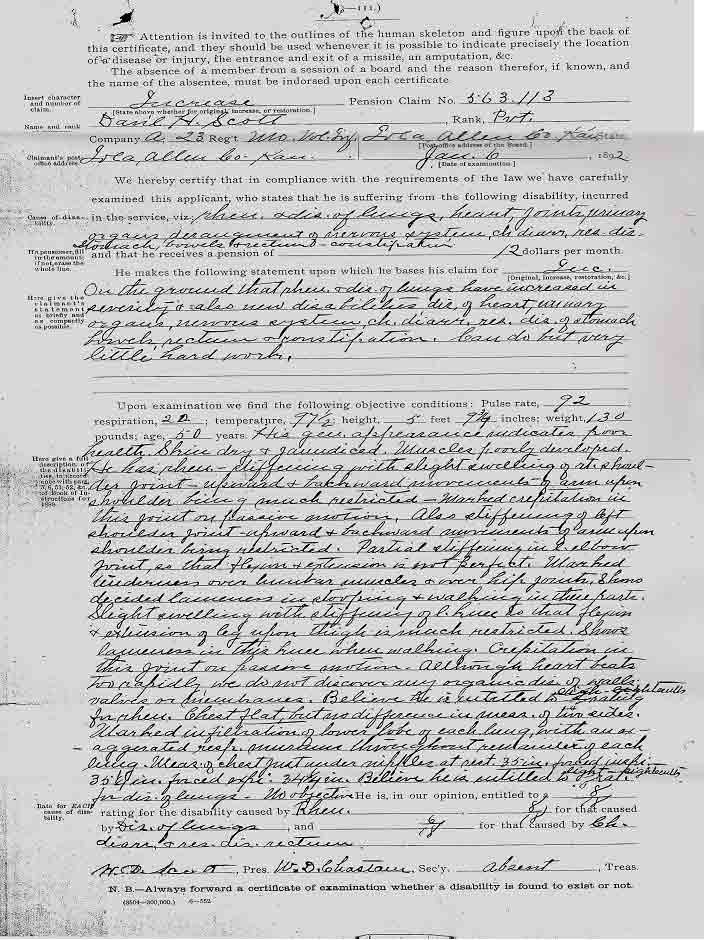 (3—111.)
Attention is invited to the outlines of the human skeleton and figure upon the back of
this certificate, and they should be used whenever it is possible to indicate precisely the location
of a disease or injury, the entrance and exit of a missile, an amputation, &c.
The absence of a member from a session of a board and the reason therefor, if known, and
the name of the absentee, must be indorsed upon each certificate
Insert character and number of claim.
Increase Pension Claim No. 563.113
[State above whether for original, increase, or restoration.]
Name and rank
H. Scott , Rank, Pvt.
Company A 23 Reg't Mo. Vol. Inf. Iola Allen Co. Kan State,
[Post-office address of the Board.]
Claimant's post-office address
Iola, Allen Co. Kan. Jan. 6 , 1892
[Date of examination.]
We hereby certify that in compliance with the requirements of the law we have carefully
examined this applicant, who states that he is suffering from the following disability, incurred
Cause of disability.
in the service, viz: rheu. & dis. of lungs, heart, joints, urinary
organs derangement of nervous system, ch. diarr., res. dis.
stomach, bowels & rectum - constipation
If a pensioner, fill in the amount; if not, erase the whole line.
and that he receives a pension of 12 dollars per month.
He makes the following statement upon which he bases his claim for Inc.
[Original, increase, restoration, &c.]
Here give the claimant's statement as briefly and as compactly as possible.
On the ground that rheu. & dis. of lungs have increased in
severity & also new disabilities dis. of heart, urinary
organs, nervous system, ch. diarr., res. dis. of stomach
bowels, rectum & constipation. Can do but very
little hard work.
Upon examination we find the following objective conditions: Pulse rate, 92
respiration, 20 ; temperature, 97½ ; height, 5 feet 9¾ inches; weight, 130
pounds; age, 50 years. His gen. appearance indicates poor
health. Skin dry & jaundiced. Muscles poorly developed.
Here give a full description of the disability
He has rheu - stiffening with slight swelling of rt. shoul-
der joint - upward & backward movements of arm upon
shoulder being much restricted - Marked crepitation in
this joint on passive motion. Also stiffening of left
shoulder joint - upward & backward movements of arm upon
shoulder being restricted. Partial stiffening in l. elbow
joint, so that flexion & extension is not perfect. Marked
tenderness over lumbar muscles & over hip joints, shows
decided lameness in stooping & walking in these parts.
Slight swelling with stiffening of l. knee so that flexion
& extension of leg upon thigh is much restricted. Shows
lameness in this knee when walking. Crepitation in
this joint on passive motion. Although heart beats
too rapidly we do not discover any organic dis. of walls
valves or membranes. Believe he is entitled to eight eighteenths
for rheu. Chest flat, but no difference in meas. of two sides.
Marked infiltration of lower lobe of each lung, with an ex-
aggerated resp. murmur throughout remainder of each
lung. Meas. of chest just under nipples at rest 35 in. forced inspi.
35½ in. forced expi. 34½ in. Believe he is entitled to eight eighteenths
for dis. of lungs - No objective He is, in our opinion, entitled to a 8/
Rate for EACH cause of disability.
rating for the disability caused by Rheu. 8/ for that caused
by Dis. of lungs , and for that caused by Ch.
diarr. & res. dis. rectum
H. D. Scott , Pres. W. D. Chastain , Sec'y. Absent , Treas.
N. B.—Always forward a certificate of examination whether a disability is found to exist or not.
(8504—300,000.) 6—552